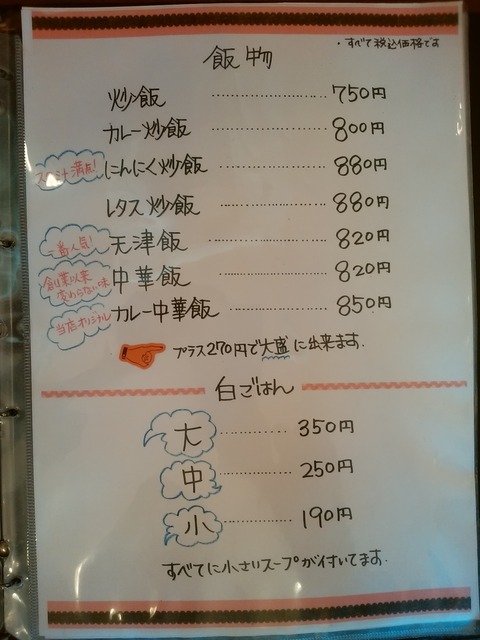 ・すべて税込価格です
飯物
炒飯 750円
カレー炒飯 800円
スタミナ満点! にんにく炒飯 880円
レタス炒飯 880円
一番人気! 天津飯 820円
創業以来変わらない味 中華飯 820円
当店オリジナル カレー中華飯 850円
プラス270円で大盛に出来ます.
白ごはん
大 350円
中 250円
小 190円
すべてに小さいスープが付いてます.